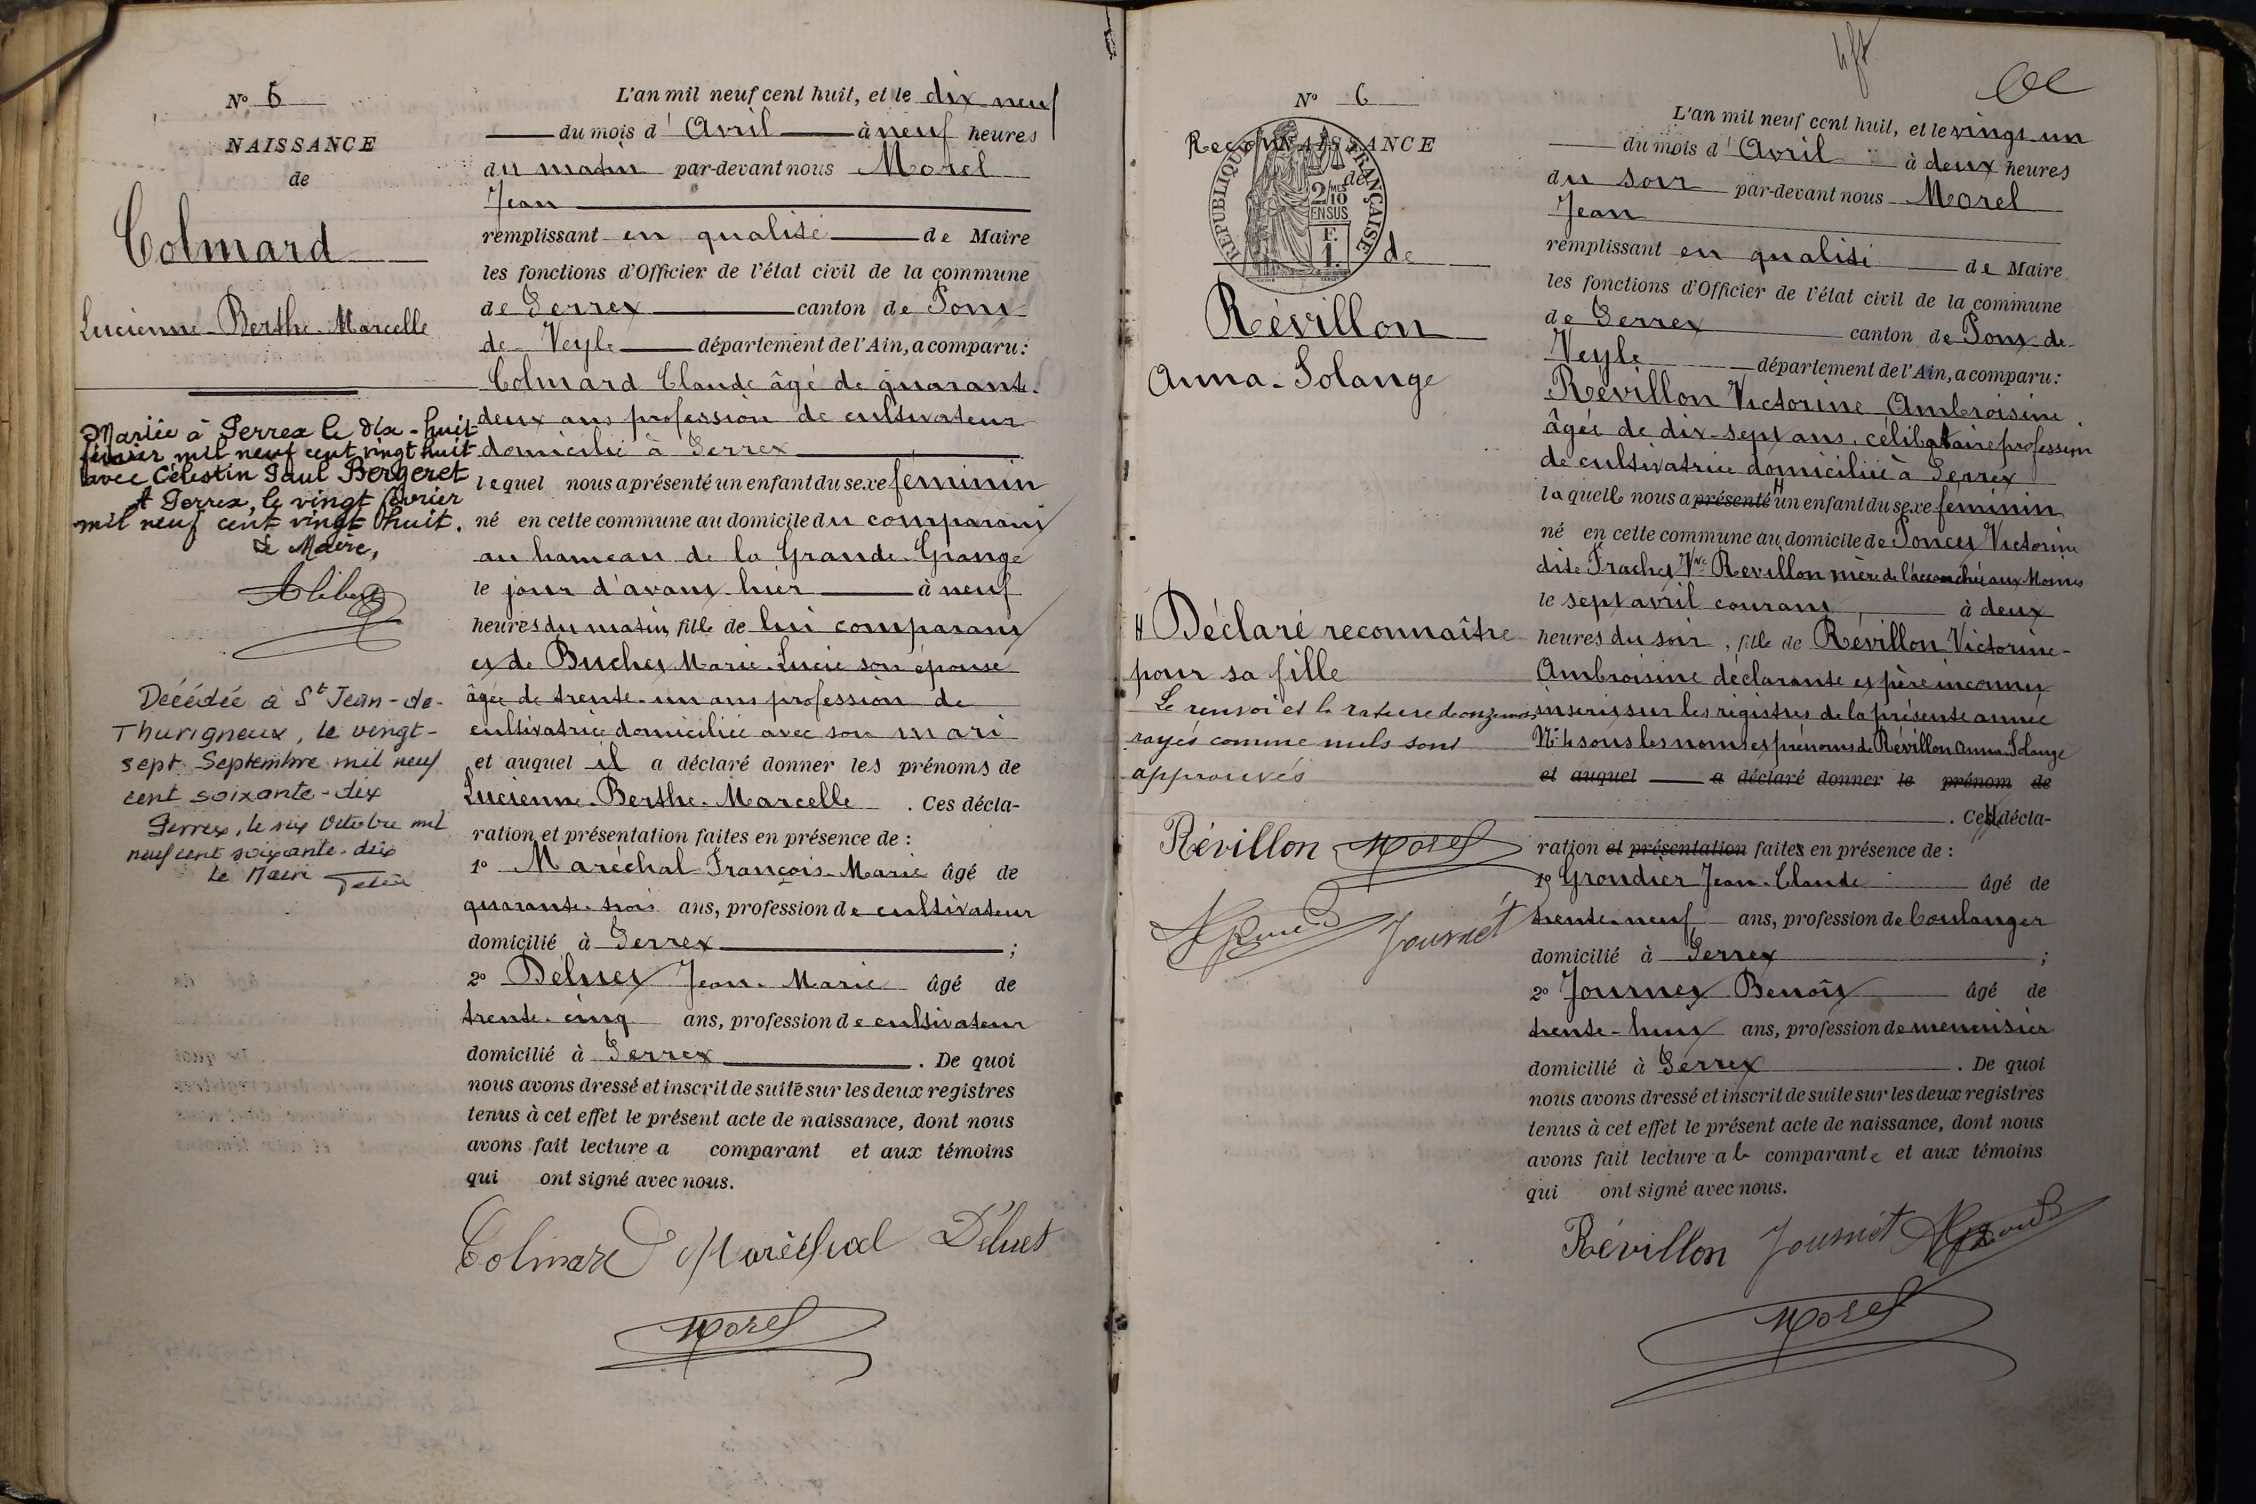 Nº 5
NAISSANCE
de
Colmard
Lucienne-Berthe-Marcelle
Mariée à Perrex le dix-huit
février mil neuf cent vingt huit
avec Célestin Paul Bergeret
A Perrex, le vingt février
mil neuf cent vingt huit.
Le Maire,
Décédée à St Jean-de-
Thurigneux, le vingt-
sept Septembre mil neuf
cent soixante-dix
Perrex, le six Octobre mil
neuf cent soixante-dix
Le Maire
L'an mil neuf cent huit, et le dix neuf
du mois d'Avril à neuf heures
du matin par-devant nous Morel
Jean
remplissant en qualité de Maire
les fonctions d'Officier de l'état civil de la commune
de Perrex canton de Pont
de Veyle département de l'Ain, a comparu:
Colmard Claude âgé de quarante-
deux ans profession de cultivateur
domicilié à Perrex
lequel nous a présenté un enfant du sexe féminin
né en cette commune au domicile du comparant
au hameau de la Grande-Grange
le jour d'avant-hier à neuf
heures du matin, fille de lui comparant
et de Buchet Marie-Lucie son épouse
âgée de trente-un ans profession de
cultivatrice domiciliée avec son mari
et auquel il a déclaré donner les prénoms de
Lucienne-Berthe-Marcelle. Ces décla-
ration et présentation faites en présence de:
1º Maréchal François-Marie âgé de
quarante-trois ans, profession de cultivateur
domicilié à Perrex ;
2º Déluet Jean-Marie âgé de
trente-cinq ans, profession de cultivateur
domicilié à Perrex. De quoi
nous avons dressé et inscrit de suite sur les deux registres
tenus à cet effet le présent acte de naissance, dont nous
avons fait lecture a comparant et aux témoins
qui ont signé avec nous.
Colmard Maréchal Déluet
Morel
Nº 6
ReconNAISSANCE
de
REPUBLIQUE FRANÇAISE
2/10
EN SUS
F.
1.
de
Révillon
Anna-Solange
H Déclaré reconnaître
pour sa fille
Le renvoi et la rature de onze mots
rayés comme nuls sont
approuvés
Révillon Morel
Journet
L'an mil neuf cent huit, et le vingt un
du mois d'Avril à deux heures
du soir par-devant nous Morel
Jean
remplissant en qualité de Maire
les fonctions d'Officier de l'état civil de la commune
de Perrex canton de Pont-de-
Veyle département de l'Ain, a comparu:
Révillon Victorine Ambroisine
âgée de dix-sept ans, célibataire profession
de cultivatrice domiciliée à Perrex
laquelle nous a présenté H un enfant du sexe féminin
né en cette commune au domicile de Poncet Victorine
dite Trachet Vve Révillon mère de l'accouchée aux Moines
le sept avril courant, à deux
heures du soir, fille de Révillon Victorine-
Ambroisine déclarante et père inconnu
inscrit sur les registres de la présente année
Nº 4 sous les noms et prénoms de Révillon Anna Solange
et auquel a déclaré donner le prénom de
. Cette décla-
ration et présentation faites en présence de:
1º Grondier Jean-Claude âgé de
trente-neuf ans, profession de boulanger
domicilié à Perrex ;
2º Journet Benoît âgé de
trente-huit ans, profession de menuisier
domicilié à Perrex. De quoi
nous avons dressé et inscrit de suite sur les deux registres
tenus à cet effet le présent acte de naissance, dont nous
avons fait lecture a la comparante et aux témoins
qui ont signé avec nous.
Révillon Journet
Morel